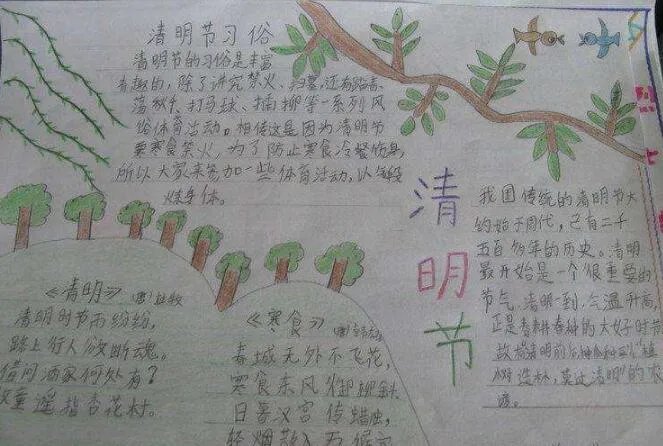 清明节习俗
清明节的习俗是丰富
有趣的,除了讲究禁火、扫墓,还有踏青、
荡秋千、打马球、插柳等一系列风
俗体育活动。相传这是因为清明节
要寒食禁火,为了防止寒食冷餐伤身,
所以大家来参加一些体育活动,以
身体。
清明节
我国传统的清明节大
约始于周代,已有二千
五百多年的历史。清明
最开始是一个很重要的
节气,清明一到,气温升高,
正是春耕春种的大好时节
故 清明前后,种瓜种豆
树造林,莫过清明"的农
谚。
《清明》 唐:杜牧
清明时节雨纷纷,
路上行人欲断魂。
借问酒家何处有?
牧童遥指杏花村。
《寒食》
春城无处不飞花,
寒食东风御柳斜。
日暮汉宫传蜡烛,
轻烟散入五侯家